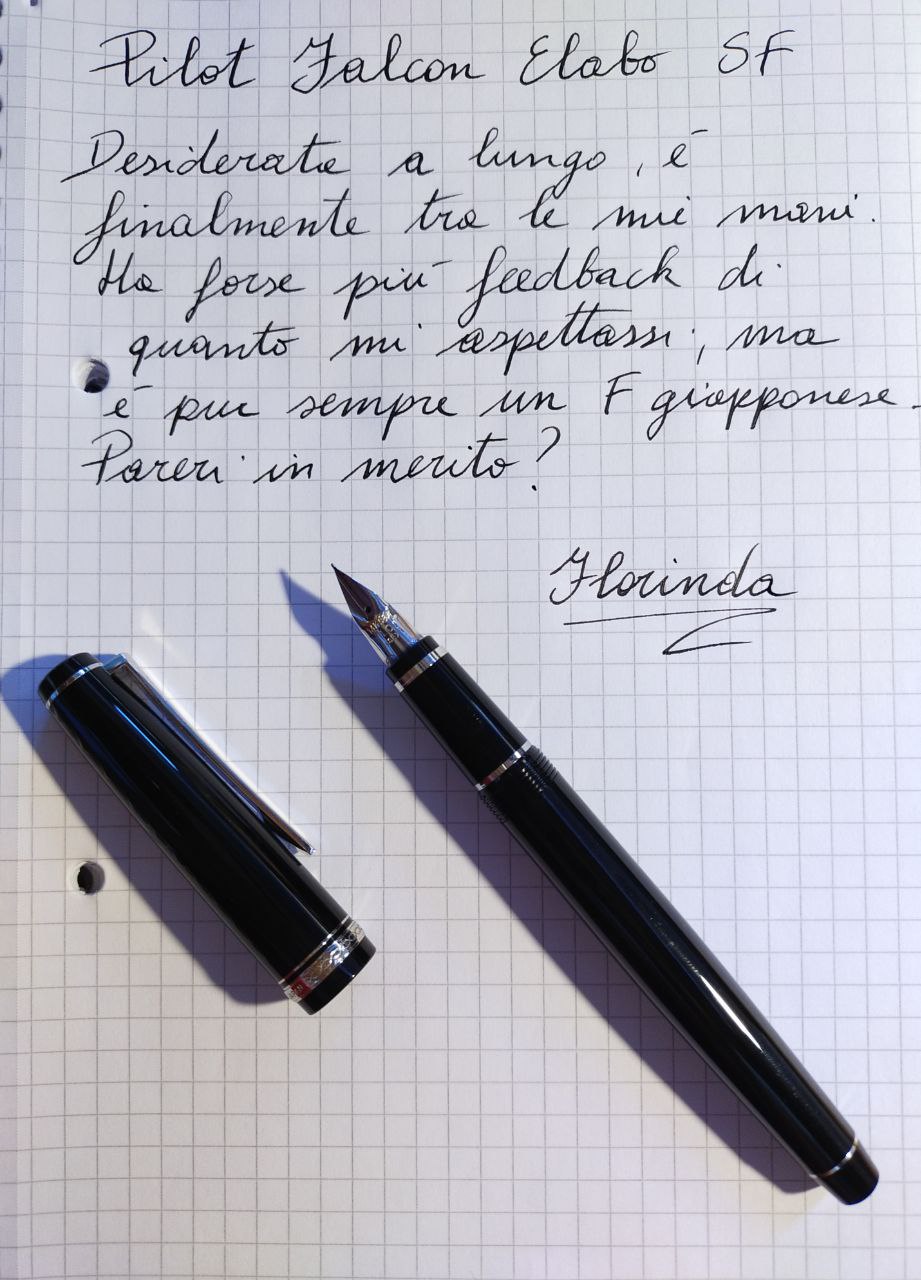 Pilot Falcon Elabo SF
Desiderata a lungo, è
finalmente tra le mie mani.
Ha forse più feedback di
quanto mi aspettassi, ma
è pur sempre un F giapponese.
Pareri in merito?
Florinda